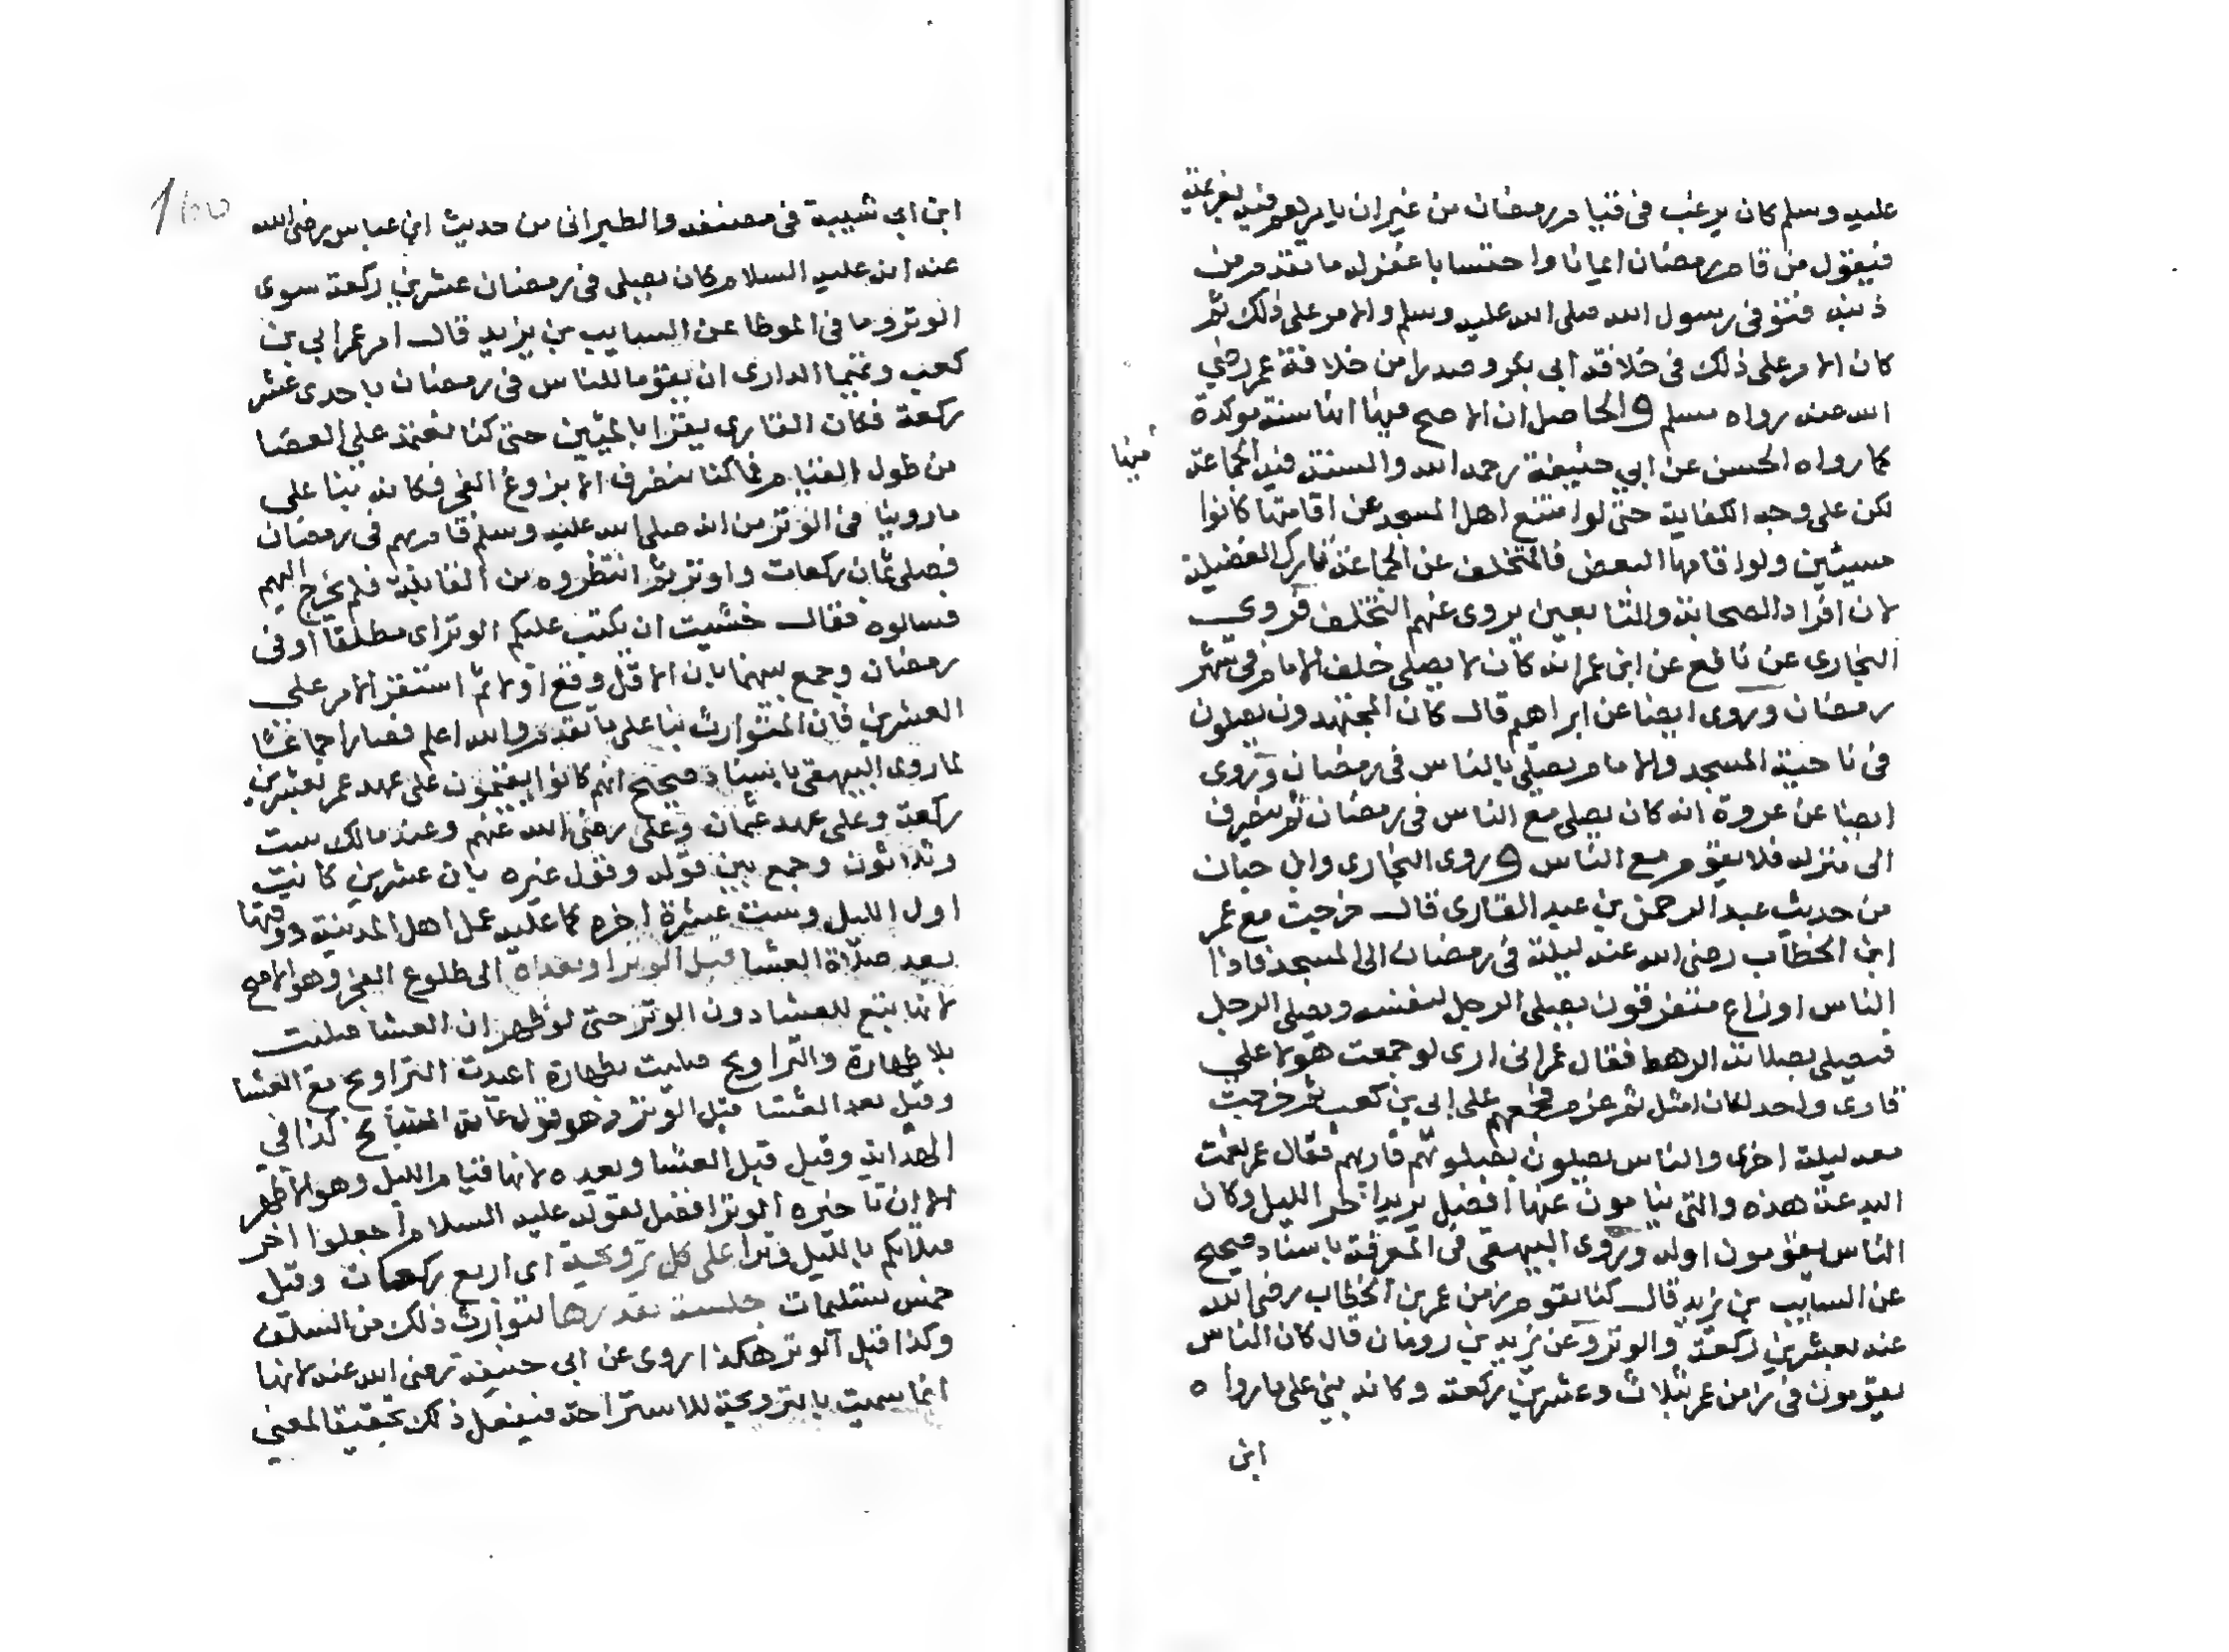 عليه وسلم كان يرغب في قيام رمضان من غير ان يامرهم فيه بعزيمة
فيقول من قام رمضان ايمانا واحتسابا غفر له ما تقدم من
ذنبه فتوفى رسول الله صلى الله عليه وسلم والامر على ذلك ثم
كان الامر على ذلك في خلافة ابي بكر وصدرا من خلافة عمر رضي
الله عنه رواه مسلم والحاصل ان الاصح فيها انها سنة موكدة
كما رواه الحسن عن ابي حنيفة رحمه الله والسنة فيه الجماعة
فيها
لكن على وجه الكفاية حتى لو امتنع اهل المسجد عن اقامتها كانوا
مسيئين ولو اقامها البعض فالمتخلف عن الجماعة تارك الفضيلة
لان افراد الصحابة والتابعين يروى عنهم التخلف فروى
البخاري عن نافع عن ابن عمر انه كان لا يصلي خلف الامام في شهر
رمضان وروى ايضا عن ابراهيم قال كان المجتهدون يصلون
في ناحية المسجد والامام يصلي بالناس في رمضان وروى
ايضا عن عروة انه كان يصلي مع الناس في رمضان ثم ينصرف
الى منزله فلا يقوم مع الناس وروى البخاري وابن حبان
من حديث عبد الرحمن بن عبد القاري قال خرجت مع عمر
ابن الخطاب رضي الله عنه ليلة في رمضان الى المسجد فاذا
الناس اوزاع متفرقون يصلي الرجل لنفسه ويصلي الرجل
فيصلي بصلاته الرهط فقال عمر اني ارى لو جمعت هولا على
قاري واحد لكان امثل ثم عزم فجمعهم على ابي بن كعب ثم خرجت
معه ليلة اخرى والناس يصلون بصلوتهم قاريهم فقال عمر نعمت
البدعة هذه والتي ينامون عنها افضل يريد اخر الليل وكان
الناس يقومون اوله وروى البيهقي في المعرفة باسناد صحيح
عن السايب بن يزيد قال كنا نقوم زمن عمر بن الخطاب رضي الله
عنه بعشرين ركعة والوتر وعن يزيد بن رومان قال كان الناس
يقومون في زمن عمر بثلاث وعشرين ركعة وكانه بني على ما رواه
ابن
ابن ابي شيبة في مصنفه والطبراني من حديث ابن عباس رضي الله
عنه انه عليه السلام كان يصلي في رمضان عشرين ركعة سوى
الوتر وما في الموطا عن السايب بن يزيد قال امر عمر ابي بن
كعب وتميما الداري ان يقوما للناس في رمضان باحدى عشر
ركعة فكان القاري يقرا بالمئين حتى كنا نعتمد على العصا
من طول القيام فما كنا ننصرف الا بزوغ الفجر فكانه بنا على
ما روينا في الوتر من انه صلى الله عليه وسلم قام بهم في رمضان
فصلى ثمان ركعات واوتر ثم انتظروه من القابلة فلم يخرج اليهم
فسالوه فقال خشيت ان يكتب عليكم الوتر اى مطلقا او في
رمضان وجمع بينهما بان الاقل وقع اولا ثم استقر الامر على
العشرين فان المتوارث بنا على ما تقدم والله اعلم فصار اجماعا
لما روى البيهقي باسناد صحيح انهم كانوا يقيمون على عهد عمر بعشرين
ركعة وعلى عهد عثمان وعلى رضي الله عنهم وعند مالك ست
وثلاثون وجمع بين قوله وقول غيره بان عشرين كانت
اول الليل وست عشرة اخره كما عليه عمل اهل المدينة ووقتها
بعد صلاة العشا قبل الوتر او بعده الى طلوع الفجر وهو الاصح
لانها تبع للعشا دون الوتر حتى لو ظهر ان العشا صليت
بلا طهارة والتراويح صليت بطهارة اعيدت التراويح مع العشا
وقيل بعد العشا قبل الوتر وهو قول عامة المشايخ كذا في
الهداية وقيل قبل العشا وبعده لانها قيام الليل وهو الاظهر
الا ان تاخيره الوتر افضل لقوله عليه السلام اجعلوا اخر
صلاتكم بالليل وترا على كل ترويحة اى اربع ركعات وقيل
خمس تسليمات جلسة بقدرها لتوارث ذلك من السلف
وكذا قبل الوتر هكذا روى عن ابي حنيفة رضي الله عنه لانها
انما سميت بالترويحة للاستراحة فيفعل ذلك تحقيقا لمعنى